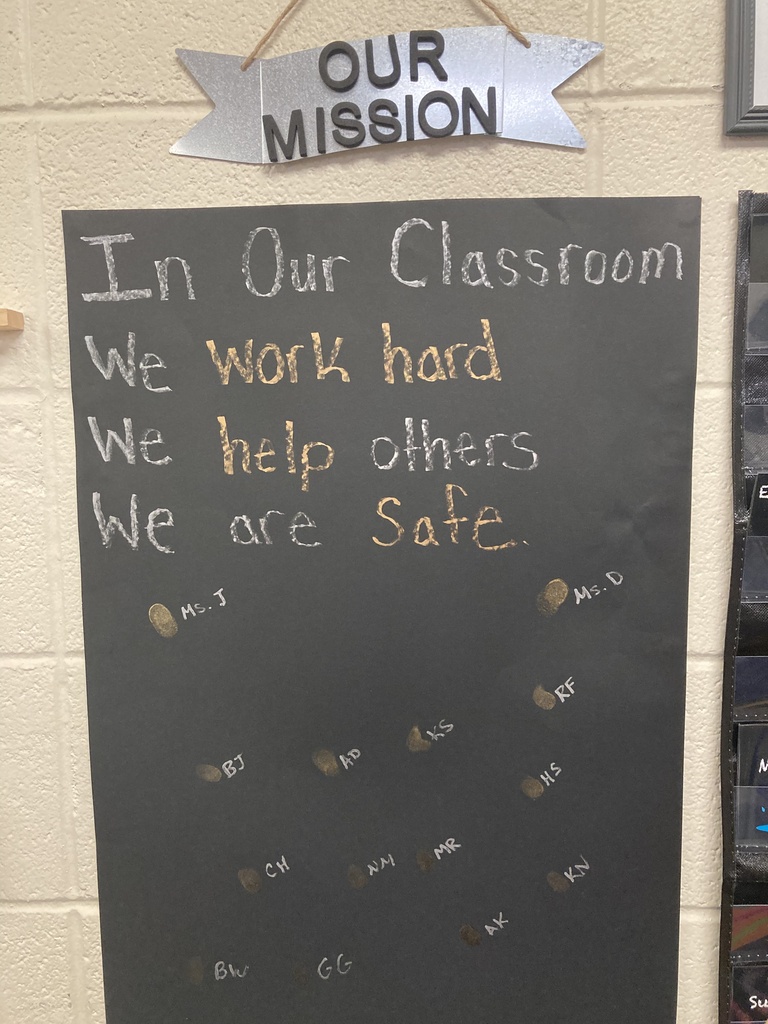 OUR
MISSION
In Our Classroom
We work hard
We help others
We are Safe.
Ms. J
Ms. D
RF
KS
BJ
AD
HS
MR
CH
NM
KN
AK
BW
GG